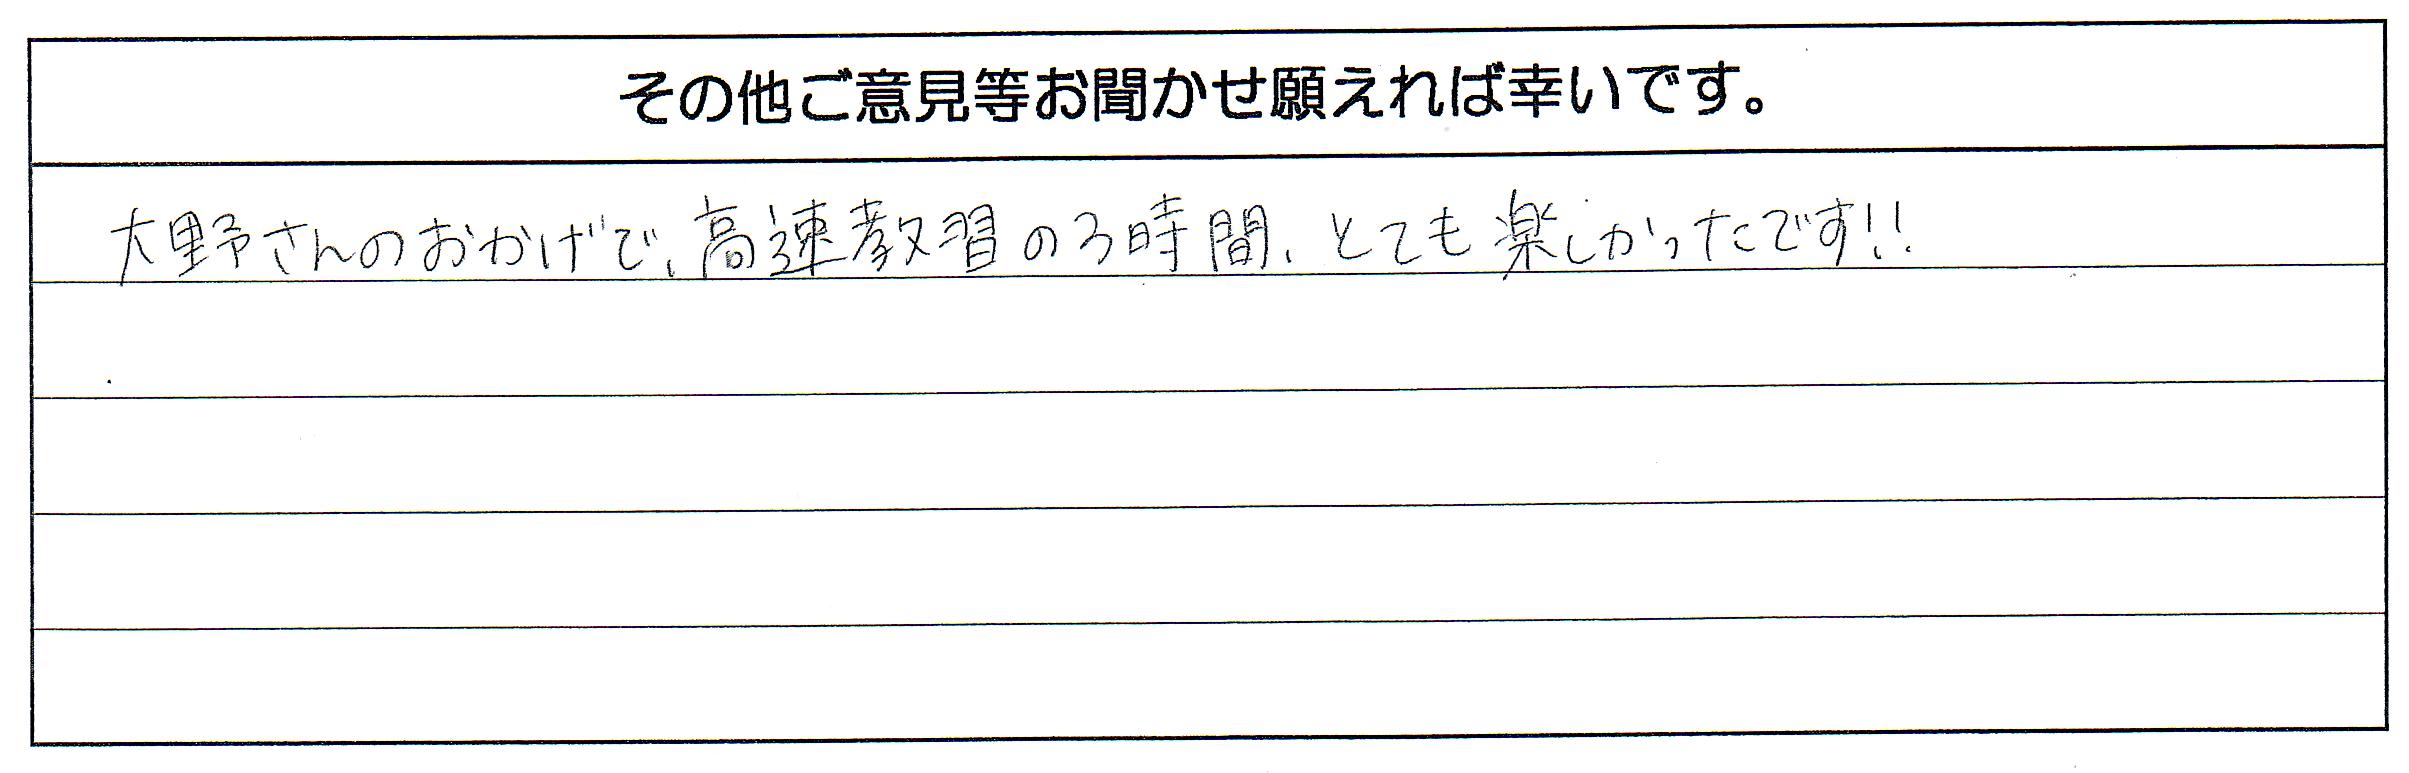 その他ご意見等お聞かせ願えれば幸いです。
大野さんのおかげで、高速教習の3時間、とても楽しかったです!!